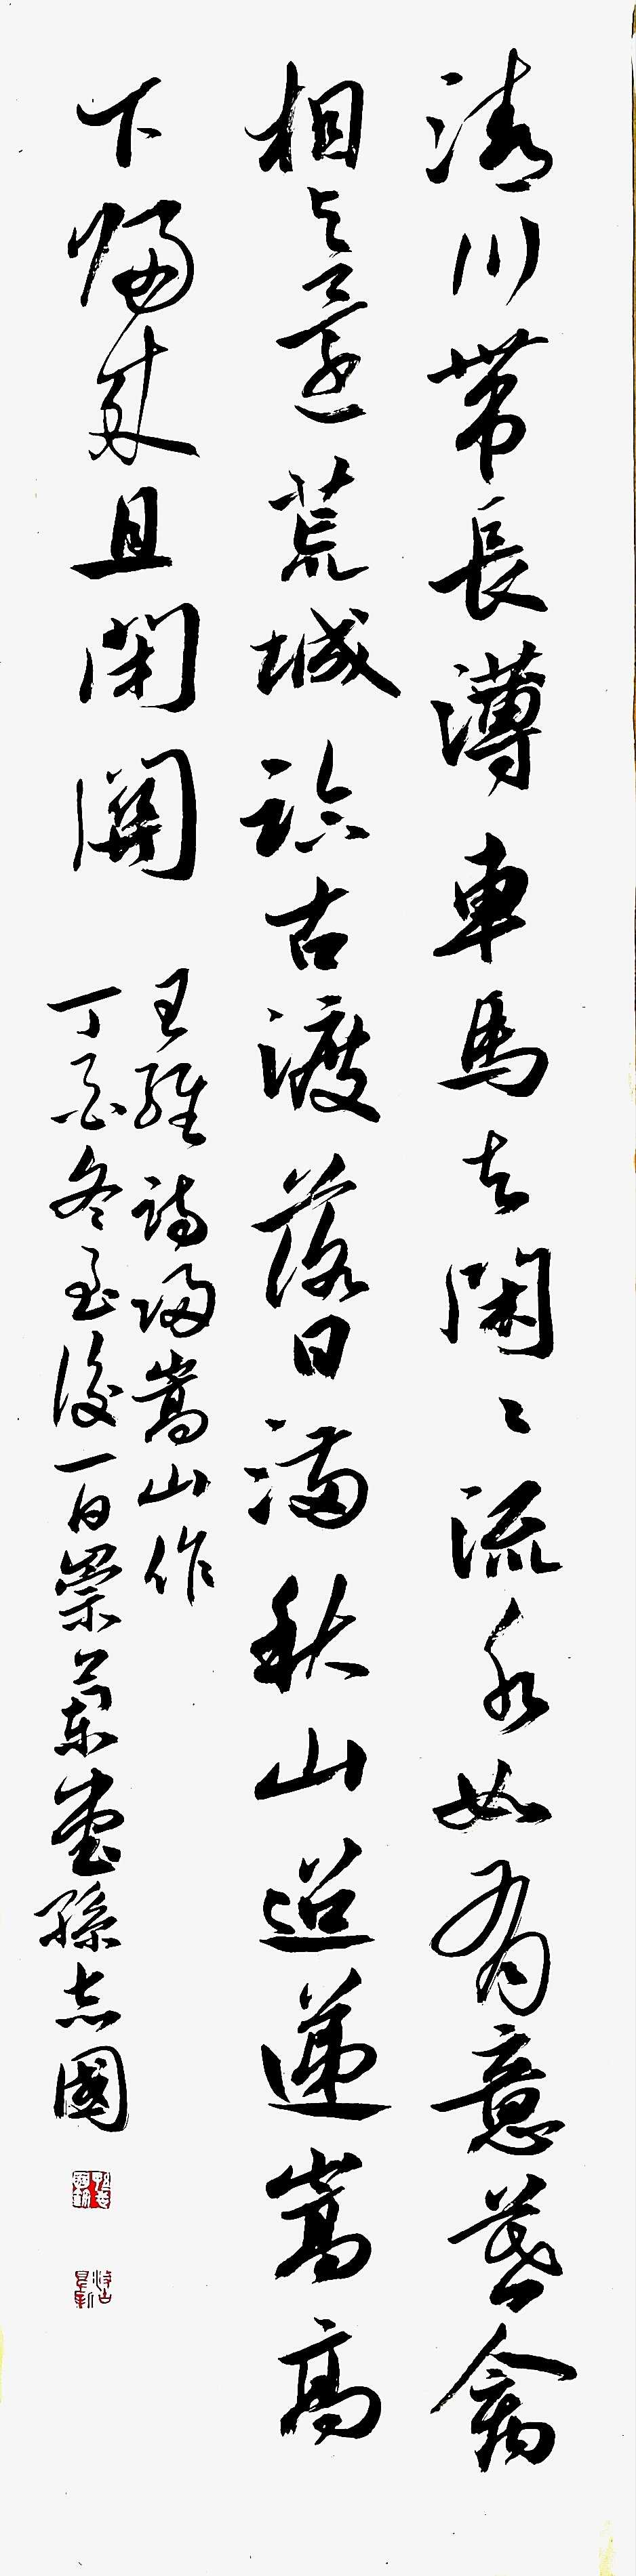 清川帶長薄車馬去閑〻流水如有意暮禽
相與還荒城臨古渡落日滿秋山迢遞嵩高
下歸來且閉關
王維詩歸嵩山作
丁酉冬至後一日崇蘭堂孫志國